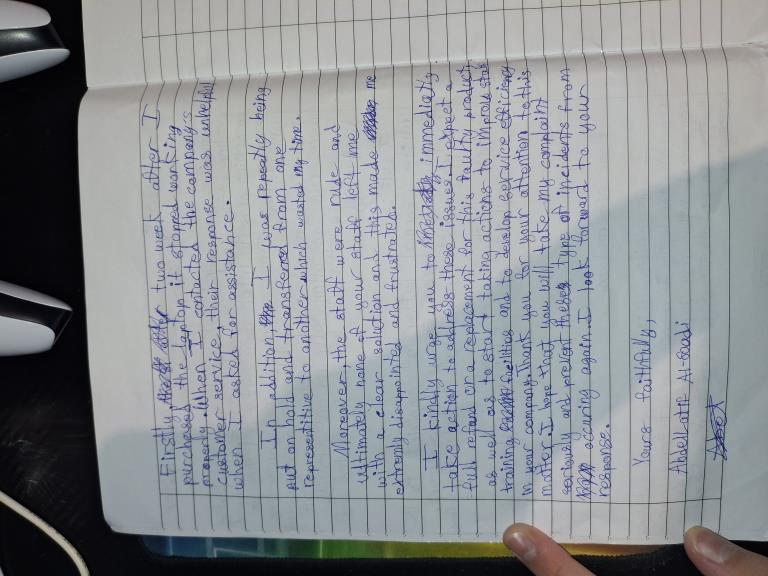 Firstly, two week after I
purchased the laptop it stopped working
properly. When I contacted the company's
customer service, their response was unhelpful
when I asked for assistance.
In addition, I was repeatly being
put on hold and transferred from one
representitive to another which wasted my time.
Moreover, the staff were rude and
ultimately none of your staff left me
with a clear solution and this made me
extremly disappointed and frustrated.
I kindly urge you to immediatly
take action to address these issues. I expect a
full refund or a replacement for this faulty product,
as well as to start taking actions to improve staff
training facilities and to develop service efficiency
in your company. Thank you for your attention to this
matter. I hope that you will take my complaint
seriously and prevent these type of incidents from
occuring again. I look forward to your
response.
Yours faithfully,
Abdell-atif Al-Saadi